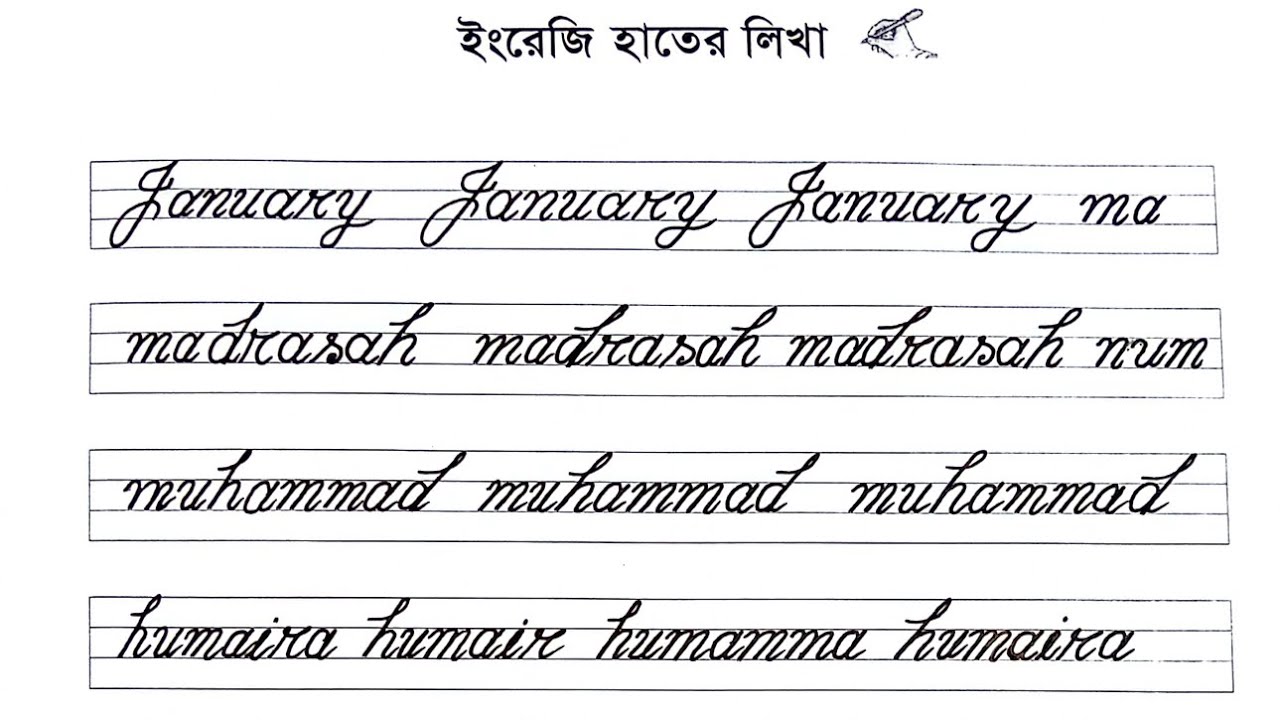 ইংরেজি হাতের লিখা
January January January ma
madrasah madrasah madrasah num
muhammad muhammad muhammad
humaira humair humamma humaira